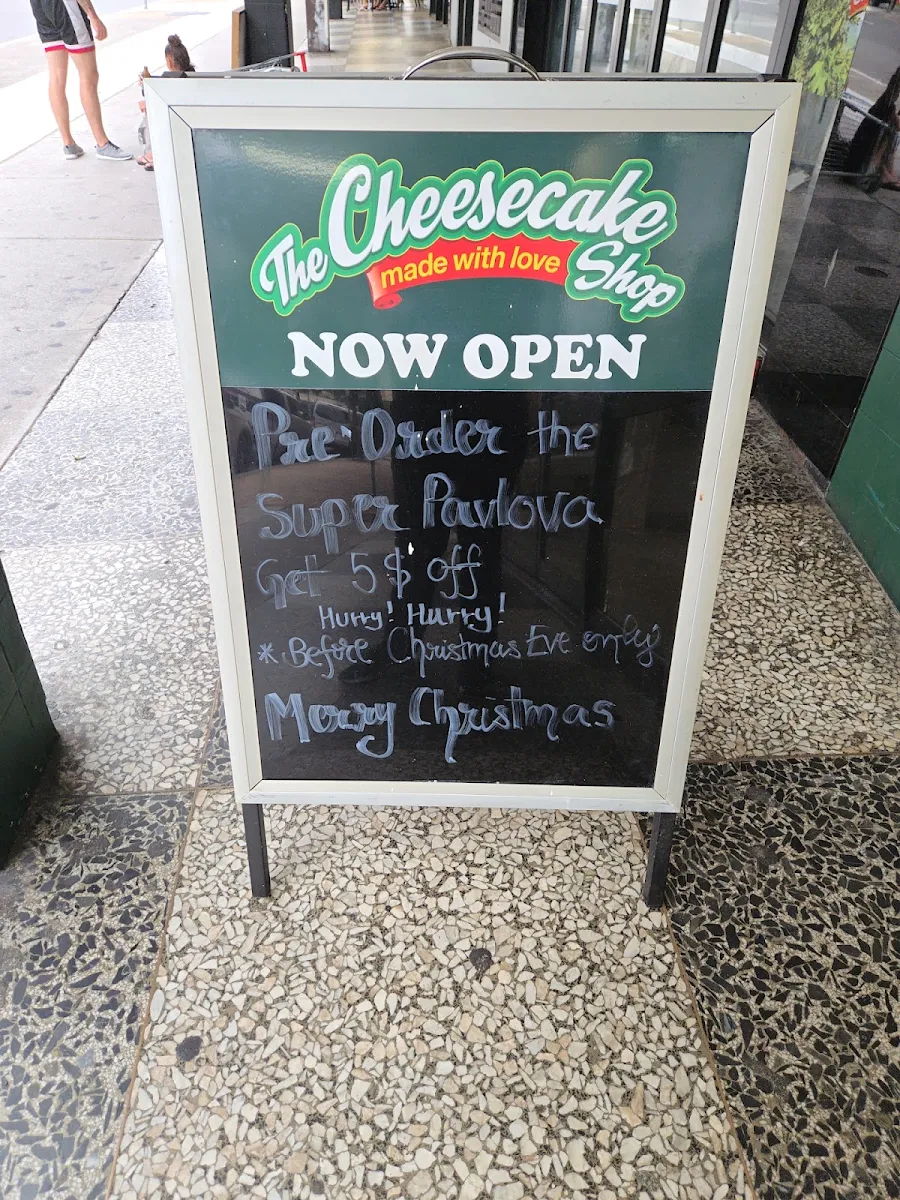 The Cheesecake Shop
made with love
NOW OPEN
Pre-Order the
Super Pavlova
Get 5$ off
Hurry! Hurry!
* Before Christmas Eve only
Merry Christmas